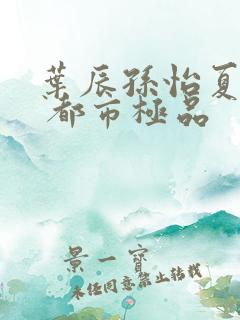 葉辰孫怡夏
都市極品
景一寶
未经同意禁止转载